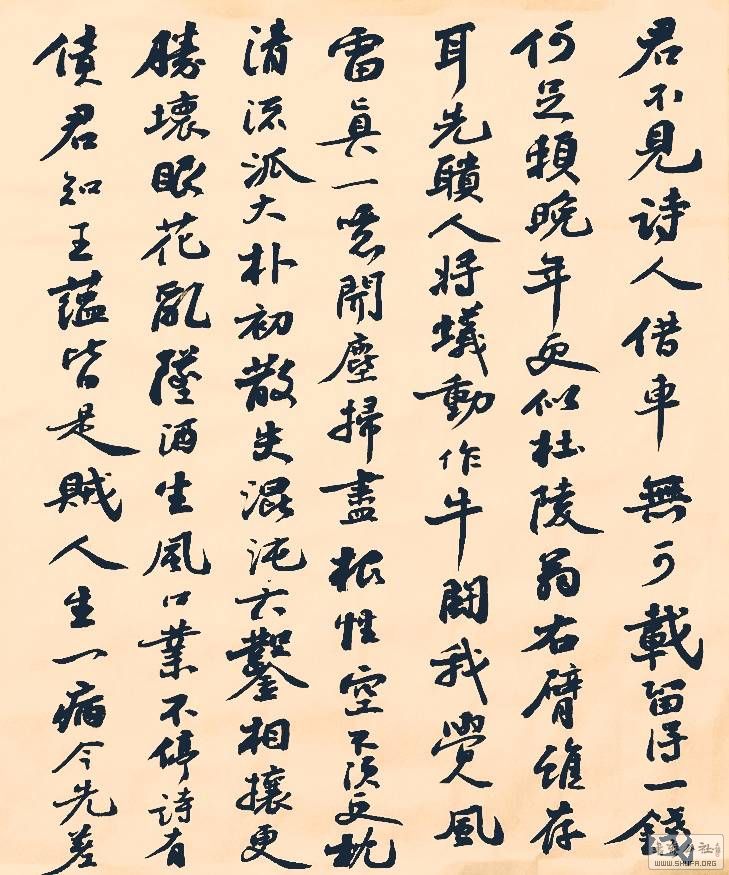 君不見詩人借車無可載留得一錢
何足賴晚年更似杜陵翁右臂雖存
耳先聵人將蟻動作牛鬪我覺風
雷真一噫聞塵掃盡根性空不須更枕
清流派大朴初散失混沌六鑿相攘更
勝壞眼花亂墜酒生風口業不停詩有
債君知五蘊皆是賊人生一病今先差
WWW.SHUFA.ORG